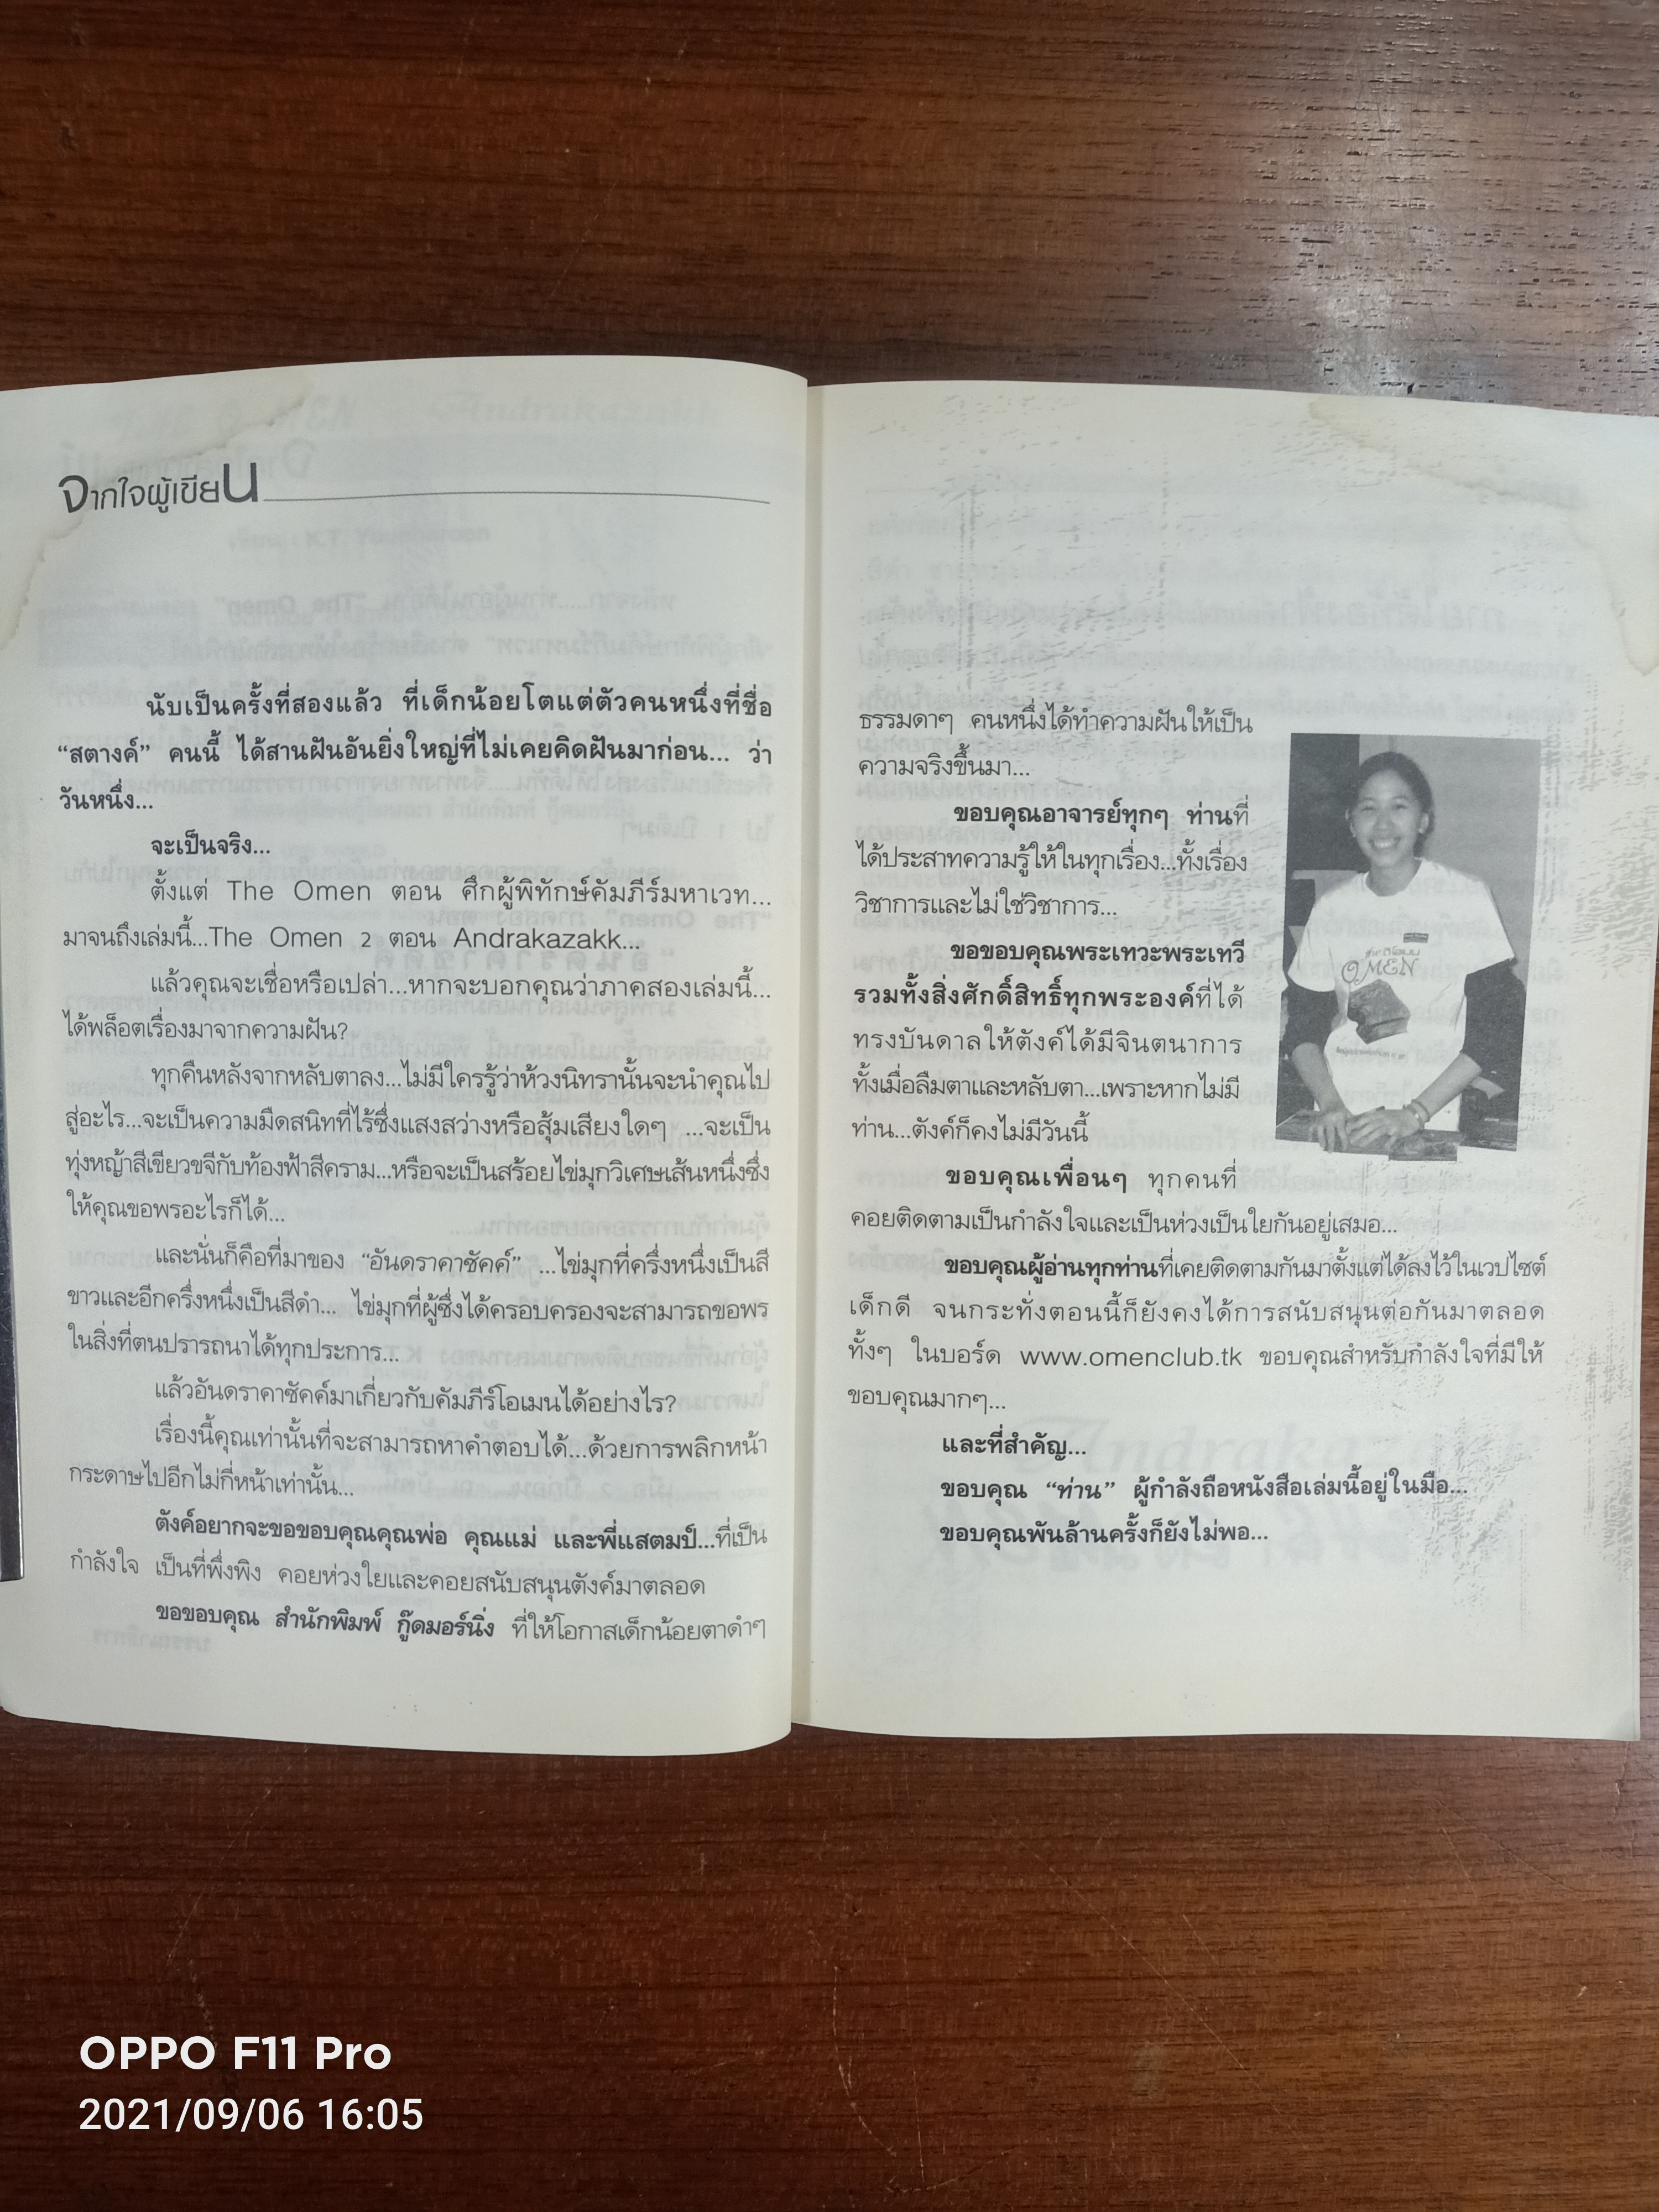 จากใจผู้เขียน
นับเป็นครั้งที่สองแล้ว ที่เด็กน้อยโตแต่ตัวคนหนึ่งที่ชื่อ
“สตางค์” คนนี้ ได้สานฝันอันยิ่งใหญ่ที่ไม่เคยคิดฝันมาก่อน... ว่า
วันหนึ่ง...
จะเป็นจริง...
ตั้งแต่ The Omen ตอน ศึกผู้พิทักษ์คัมภีร์มหาเวท...
มาจนถึงเล่มนี้...The Omen 2 ตอน Andrakazakk...
แล้วคุณจะเชื่อหรือเปล่า...หากจะบอกคุณว่าภาคสองเล่มนี้...
ได้พล็อตเรื่องมาจากความฝัน?
ทุกคืนหลังจากหลับตาลง...ไม่มีใครรู้ว่าห้วงนิทรานั้นจะนำคุณไป
สู่อะไร...จะเป็นความมืดสนิทที่ไร้ซึ่งแสงสว่างหรือสุ้มเสียงใดๆ ...จะเป็น
ทุ่งหญ้าสีเขียวขจีกับท้องฟ้าสีคราม...หรือจะเป็นสร้อยไข่มุกวิเศษเส้นหนึ่งซึ่ง
ให้คุณขอพรอะไรก็ได้...
และนั่นก็คือที่มาของ “อันดราคาซัคค์” ...ไข่มุกที่ครึ่งหนึ่งเป็นสี
ขาวและอีกครึ่งหนึ่งเป็นสีดำ... ไข่มุกที่ผู้ซึ่งได้ครอบครองจะสามารถขอพร
ในสิ่งที่ตนปรารถนาได้ทุกประการ...
แล้วอันดราคาซัคค์มาเกี่ยวกับคัมภีร์โอเมนได้อย่างไร?
เรื่องนี้คุณเท่านั้นที่จะสามารถหาคำตอบได้...ด้วยการพลิกหน้า
กระดาษไปอีกไม่กี่หน้าเท่านั้น...
ตังค์อยากจะขอขอบคุณคุณพ่อ คุณแม่ และพี่แสตมป์...ที่เป็น
กำลังใจ เป็นที่พึ่งพิง คอยห่วงใยและคอยสนับสนุนตังค์มาตลอด
ขอขอบคุณ สำนักพิมพ์ กู๊ดมอร์นิ่ง ที่ให้โอกาสเด็กน้อยตาดำๆ
ธรรมดาๆ คนหนึ่งได้ทำความฝันให้เป็น
ความจริงขึ้นมา...
ขอบคุณอาจารย์ทุกๆ ท่านที่
ได้ประสาทความรู้ให้ในทุกเรื่อง...ทั้งเรื่อง
วิชาการและไม่ใช่วิชาการ...
ขอขอบคุณพระเทวะพระเทวี
รวมทั้งสิ่งศักดิ์สิทธิ์ทุกพระองค์ที่ได้
ทรงบันดาลให้ตังค์ได้มีจินตนาการ
ทั้งเมื่อลืมตาและหลับตา...เพราะหากไม่มี
ท่าน...ตังค์ก็คงไม่มีวันนี้
ขอบคุณเพื่อนๆ ทุกคนที่
คอยติดตามเป็นกำลังใจและเป็นห่วงเป็นใยกันอยู่เสมอ...
ขอบคุณผู้อ่านทุกท่านที่เคยติดตามกันมาตั้งแต่ได้ลงไว้ในเวปไซต์
เด็กดี จนกระทั่งตอนนี้ก็ยังคงได้การสนับสนุนต่อกันมาตลอด
ทั้งๆ ในบอร์ด www.omenclub.tk ขอบคุณสำหรับกำลังใจที่มีให้
ขอบคุณมากๆ...
และที่สำคัญ...
ขอบคุณ “ท่าน” ผู้กำลังถือหนังสือเล่มนี้อยู่ในมือ...
ขอบคุณพันล้านครั้งก็ยังไม่พอ...
OMEN
OPPO F11 Pro
2021/09/06 16:05